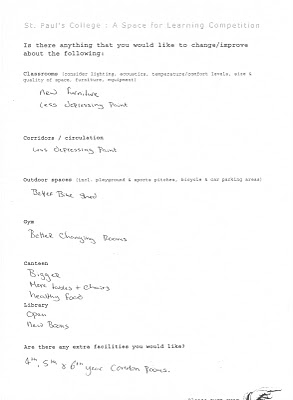 St. Paul's College : A Space for Learning Competition
Is there anything that you would like to change/improve
about the following:
Classrooms (consider lighting, acoustics, temperature/comfort levels, size &
quality of space, furniture, equipment)
New furniture
Less depressing Paint
Corridors / circulation
Less Depressing Paint
Outdoor spaces (incl. playground & sports pitches, bicycle & car parking areas)
Better Bike shed
Gym
Better Changing Rooms
Canteen
Bigger
More tables + Chairs
healthy food
Library
Open
New Books
Are there any extra facilities you would like?
4th, 5th & 6th year Common Rooms.
Please turn over